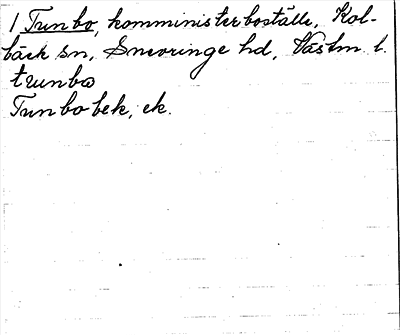 1 Tunbo, komministerboställe, Kol-
bäck sn, Snevringe hd, Västm. l.
trunbω
Tunbo bek, ek.